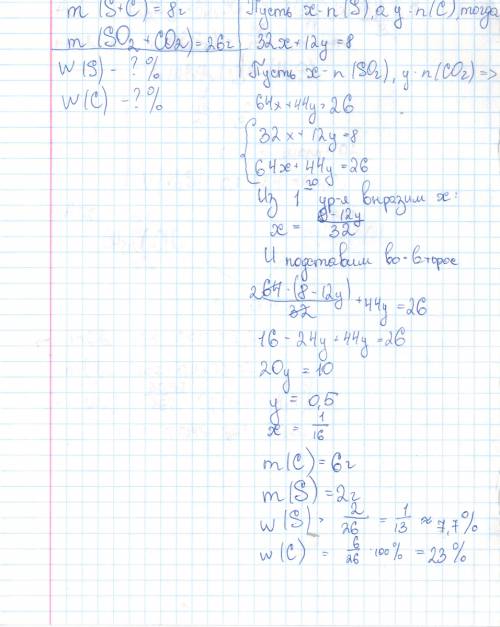 m (S+C) = 8г
m (SO₂ + CO₂) = 26г
W (S) - ? %
W (C) - ? %
Пусть x - n (S), а y - n (C), тогда
32x + 12y = 8
Пусть x - n (SO₂), y - n (CO₂) =>
64x + 44y = 26
{ 32x + 12y = 8
64x + 44y = 26
Из 1 го ур-я выразим x:
x = 8 - 12y / 32
И подставим во второе
264 · (8 - 12y) / 32 + 44y = 26
16 - 24y + 44y = 26
20y = 10
y = 0,5
x = 1/16
m (C) = 6г
m (S) = 2г
w (S) = 2/26 = 1/13 ≈ 7,7%
w (C) = 6/26 · 100% = 23%